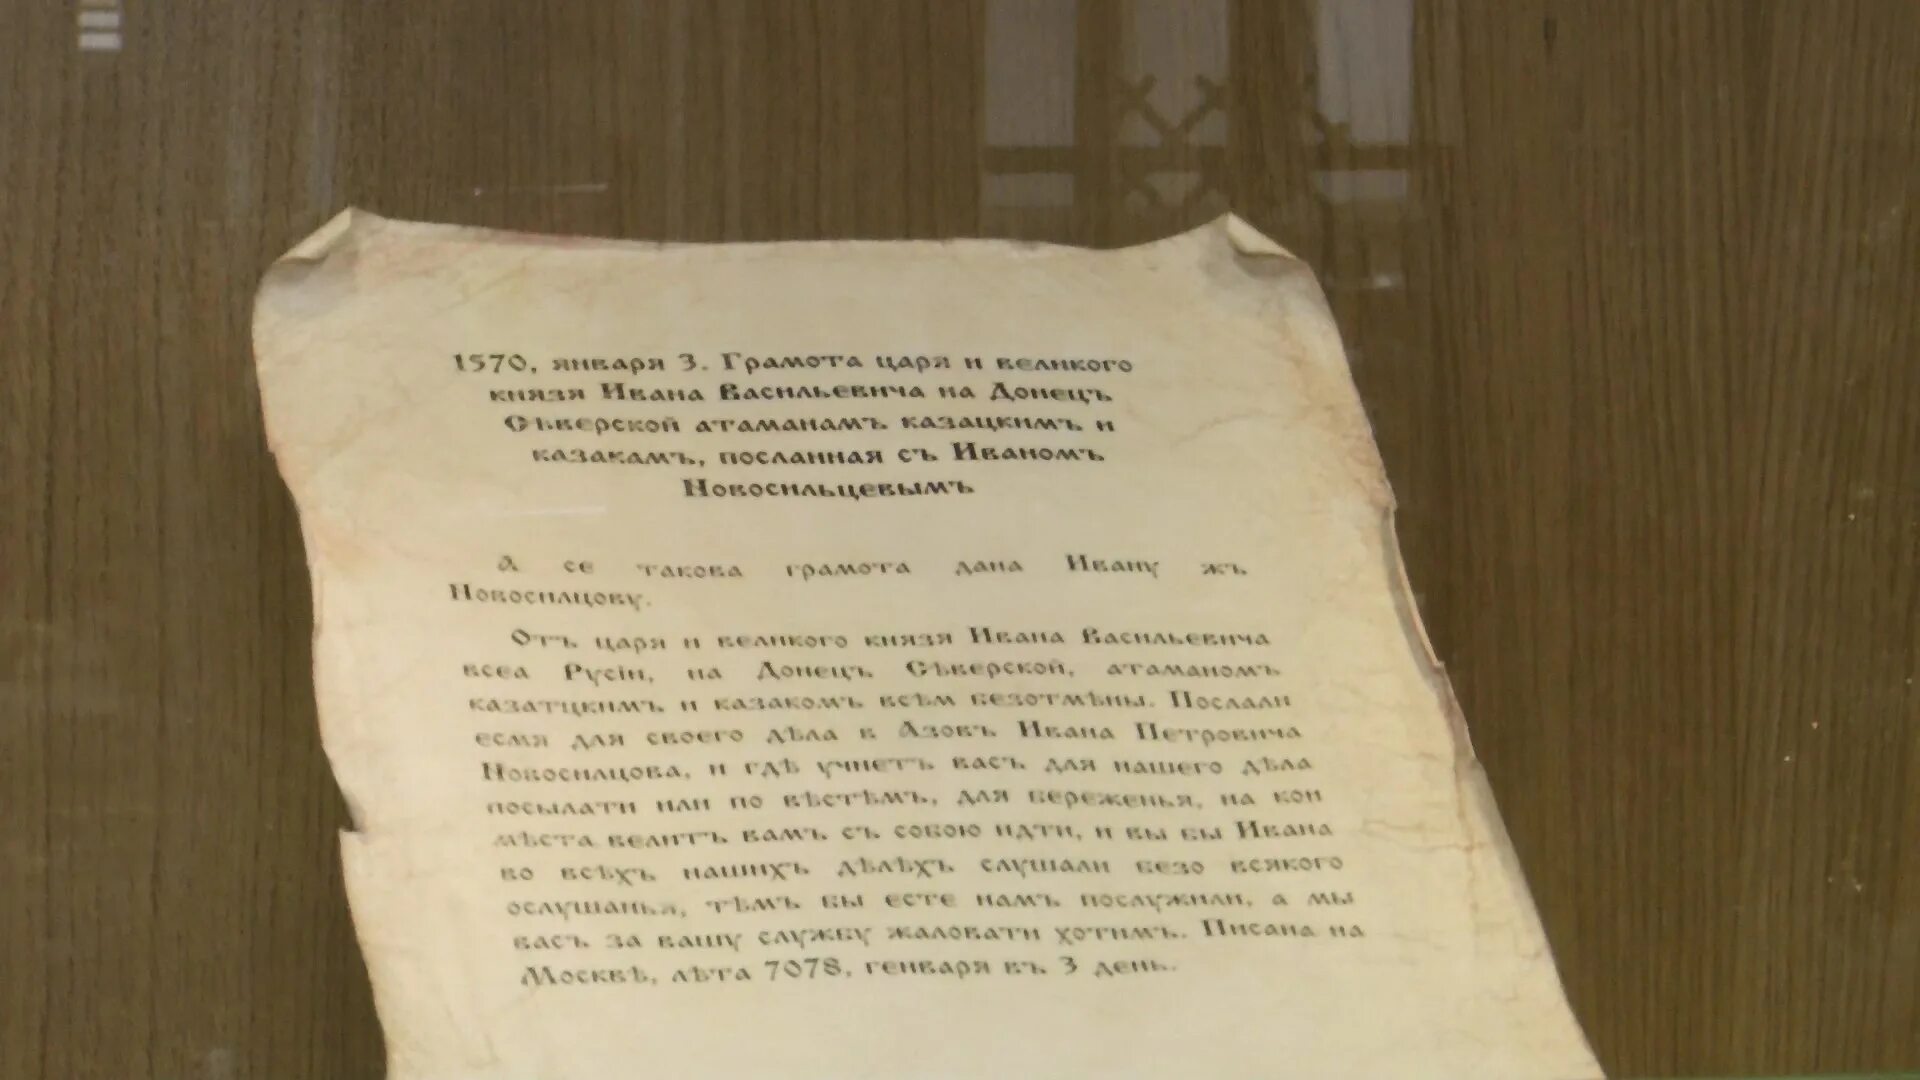 1570, января 3. Грамота царя и великого
князя Ивана Васильевича на Донецъ
Сѣверской атаманамъ казацкимъ и
казакамъ, посланная съ Иваномъ
Новосильцевымъ
А се такова грамота дана Ивану жъ
Новосилцову.
Отъ царя и великого князя Ивана Васильевича
всеа Русіи, на Донецъ Сѣверской, атаманомъ
казатцкимъ и казакомъ всѣм безотмѣны. Послали
есмя для своего дѣла в Азовъ Ивана Петровича
Новосилцова, и гдѣ учнетъ васъ для нашего дѣла
посылати или по вѣстѣмъ, для береженья, на кои
мѣста велитъ вамъ съ собою идти, и вы бы Ивана
во всѣхъ нашихъ дѣлѣхъ слушали безо всякого
ослушанья, тѣмъ бы есте намъ послужили, а мы
васъ за вашу службу жаловати хотимъ. Писана на
Москвѣ, лѣта 7078, генваря въ 3 день.